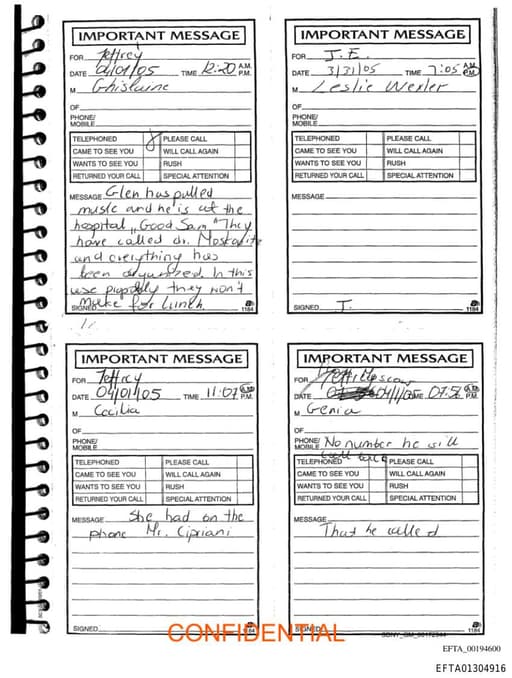 IMPORTANT MESSAGE
FOR Jeffrey
DATE 04/01/05 TIME 12:20 A.M. P.M.
M Ghislaine
OF
PHONE/
MOBILE
TELEPHONED PLEASE CALL
CAME TO SEE YOU WILL CALL AGAIN
WANTS TO SEE YOU RUSH
RETURNED YOUR CALL SPECIAL ATTENTION
MESSAGE Glen has pulled
music and he is at the
hospital "Good Sam" They
have called dr. Moskovitz
and everything has
been organized In this
use they won't
make for lunch.
SIGNED 1184
IMPORTANT MESSAGE
FOR J.E.
DATE 3/31/05 TIME 7:05 A.M. P.M.
M Leslie Wexler
OF
PHONE/
MOBILE
TELEPHONED PLEASE CALL
CAME TO SEE YOU WILL CALL AGAIN
WANTS TO SEE YOU RUSH
RETURNED YOUR CALL SPECIAL ATTENTION
MESSAGE
SIGNED J. 1184
IMPORTANT MESSAGE
FOR Jeffrey
DATE 04/01/05 TIME 11:07 A.M. P.M.
M Cecilia
OF
PHONE/
MOBILE
TELEPHONED PLEASE CALL
CAME TO SEE YOU WILL CALL AGAIN
WANTS TO SEE YOU RUSH
RETURNED YOUR CALL SPECIAL ATTENTION
MESSAGE She had on the
phone Mr. Cipriani
SIGNED 1184
IMPORTANT MESSAGE
FOR
DATE TIME A.M. P.M.
M Genia
OF
PHONE/ No number he will
MOBILE call back
TELEPHONED PLEASE CALL
CAME TO SEE YOU WILL CALL AGAIN
WANTS TO SEE YOU RUSH
RETURNED YOUR CALL SPECIAL ATTENTION
MESSAGE
That he called
SIGNED 1184
CONFIDENTIAL
EFTA_00194600
EFTA01304916